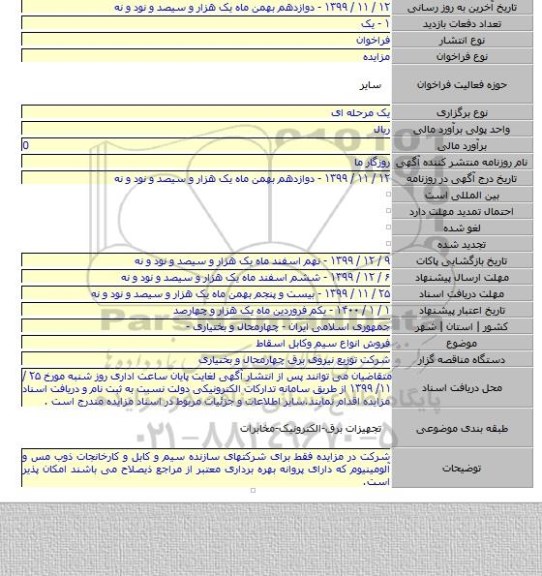 تاریخ آخرین به روز رسانی ۱۲ / ۱۱ / ۱۳۹۹ - دوازدهم بهمن ماه یک هزار و سیصد و نود و نه
تعداد دفعات بازدید ۱ - یک
نوع انتشار فراخوان
نوع فراخوان مزایده
حوزه فعالیت فراخوان سایر
نوع برگزاری یک مرحله ای
واحد پولی برآورد مالی ریال
برآورد مالی 0
نام روزنامه منتشر کننده آگهی روزگار ما
تاریخ درج آگهی در روزنامه ۱۲ / ۱۱ / ۱۳۹۹ - دوازدهم بهمن ماه یک هزار و سیصد و نود و نه
بین المللی است
احتمال تمدید مهلت دارد
لغو شده
تجدید شده
تاریخ بازگشایی پاکات ۹ / ۱۲ / ۱۳۹۹ - نهم اسفند ماه یک هزار و سیصد و نود و نه
مهلت ارسال پیشنهاد ۶ / ۱۲ / ۱۳۹۹ - ششم اسفند ماه یک هزار و سیصد و نود و نه
مهلت دریافت اسناد ۲۵ / ۱۱ / ۱۳۹۹ - بیست و پنجم بهمن ماه یک هزار و سیصد و نود و نه
تاریخ اعتبار پیشنهاد ۱ / ۱ / ۱۴۰۰ - یکم فروردین ماه یک هزار و چهارصد
کشور | استان | شهر جمهوری اسلامی ایران - چهارمحال و بختیاری -
موضوع فروش انواع سیم وکابل اسقاط
دستگاه مناقصه گزار شرکت توزیع نیروی برق چهارمحال و بختیاری
محل دریافت اسناد متقاضیان می توانند پس از انتشار آگهی لغایت پایان ساعت اداری روز شنبه مورخ ۲۵ /
۱۱/ ۱۳۹۹ از طریق سامانه تدارکات الکترونیکی دولت نسبت به ثبت نام و دریافت اسناد
مزایده اقدام نمایند.سایر اطلاعات و جزئیات مربوط در اسناد مزایده مندرج است .
طبقه بندی موضوعی تجهیزات برق-الکترونیک-مخابرات
توضیحات شرکت در مزایده فقط برای شرکتهای سازنده سیم و کابل و کارخانجات ذوب مس و
آلومینیوم که دارای پروانه بهره برداری معتبر از مراجع ذیصلاح می باشند امکان پذیر
است.
۰۲۱-۸۸۳۴۹۶۷۰-۵